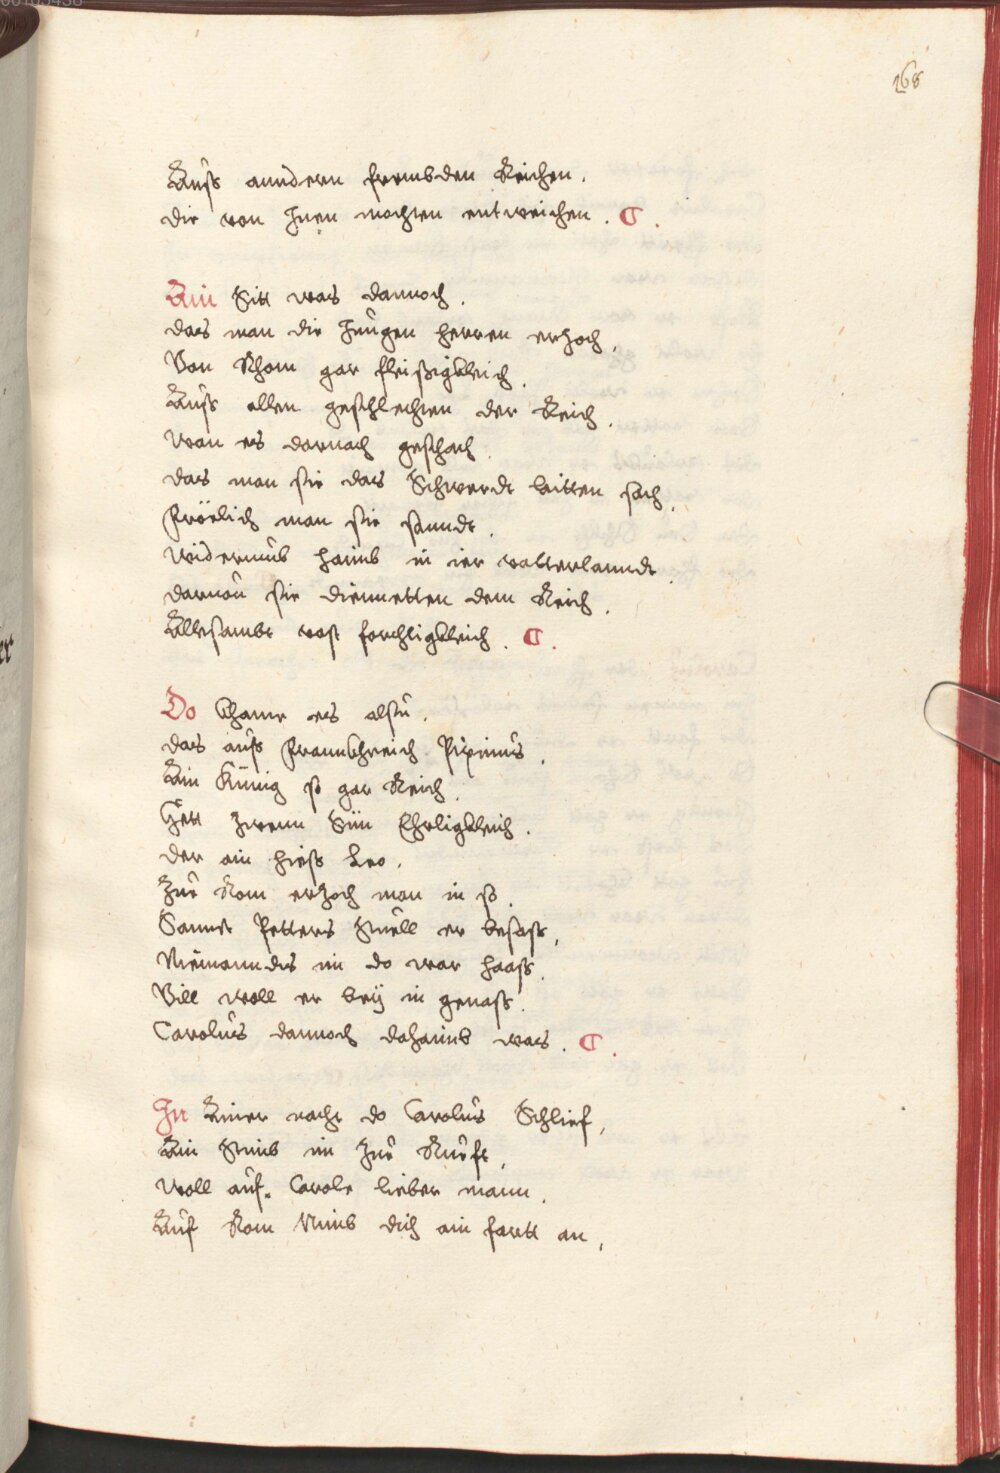 00103438
168
Auß anndern frembden Reichen.
die von Inen mochten entweichen. C.
Ain Sitt was dannoch.
das man die Jungen herren erzoch.
Von Rhom gar fleissigkleich.
Auß allen geschlechten der Reich.
wan es darnach geschach.
das man sie das Schwerdt laitten sach.
Frölich man sie sanndt.
widerumb haimb in ier vatterlanndt.
darnon sie diennetten dem Reich.
Allesambt vast forchtigkleich. C.
Do khame es alsu.
das auß Frannkhreich Pipinus.
Ain Künig so gar Reich.
Hett zwenn Sün Ehrligkleich.
der ain hieß Leo.
Zue Rom erzoch man in so.
Sannct Petters Stuell er besaß,
Niemanndts im do war haaß.
Vill woll er beÿ in genaß.
Carolus dannoch dahaimb was. C.
In Ainer nacht do Carolus Schlief,
Ain Stimb im Zue Rueft,
Woll auf. Carole lieber mann.
Auf Rom Nimb dich ain fartt an,